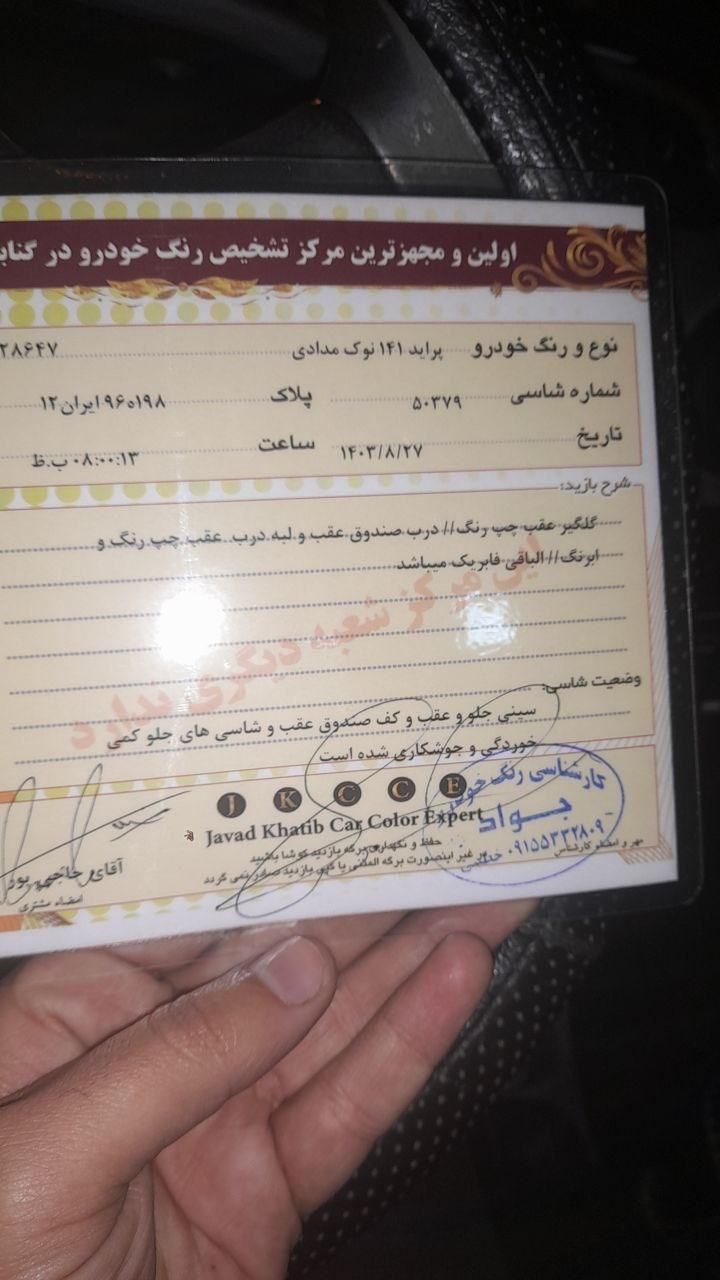 اولین و مجهزترین مرکز تشخیص رنگ خودرو در گناب
نوع و رنگ خودرو پراید ۱۴۱ نوک مدادی ۲۸۶۴۷
شماره شاسی ۵۰۳۷۹ پلاک ۹۶۵۱۹۸ ایران ۱۲
تاریخ ۱۴۰۳/۸/۲۷ ساعت ۰۸:۰۰:۱۳ ب.ظ
شرح بازید:
گلگیر عقب چپ رنگ// درب صندوق عقب و لبه درب عقب چپ رنگ و
ابرنگ// الباقی فابریک میباشد
این مرکز شعبه دیگری ندارد
وضعیت شاسی:
سینی جلو و عقب و کف صندوق عقب و شاسی های جلو کمی
خوردگی و جوشکاری شده است
J K C C E
Javad Khatib Car Color Expert
حفظ و نگهداری برگه بازدید کوشا باشید
در غیر اینصورت برگه المثنی یا کپی بازدید صادر نمی گردد
کارشناسی رنگ خودرو
جواد
۰۹۱۵۵۳۳۲۸۰۹
مهر و امضاء کارشناس
آقای حاجی پور
امضاء مشتری